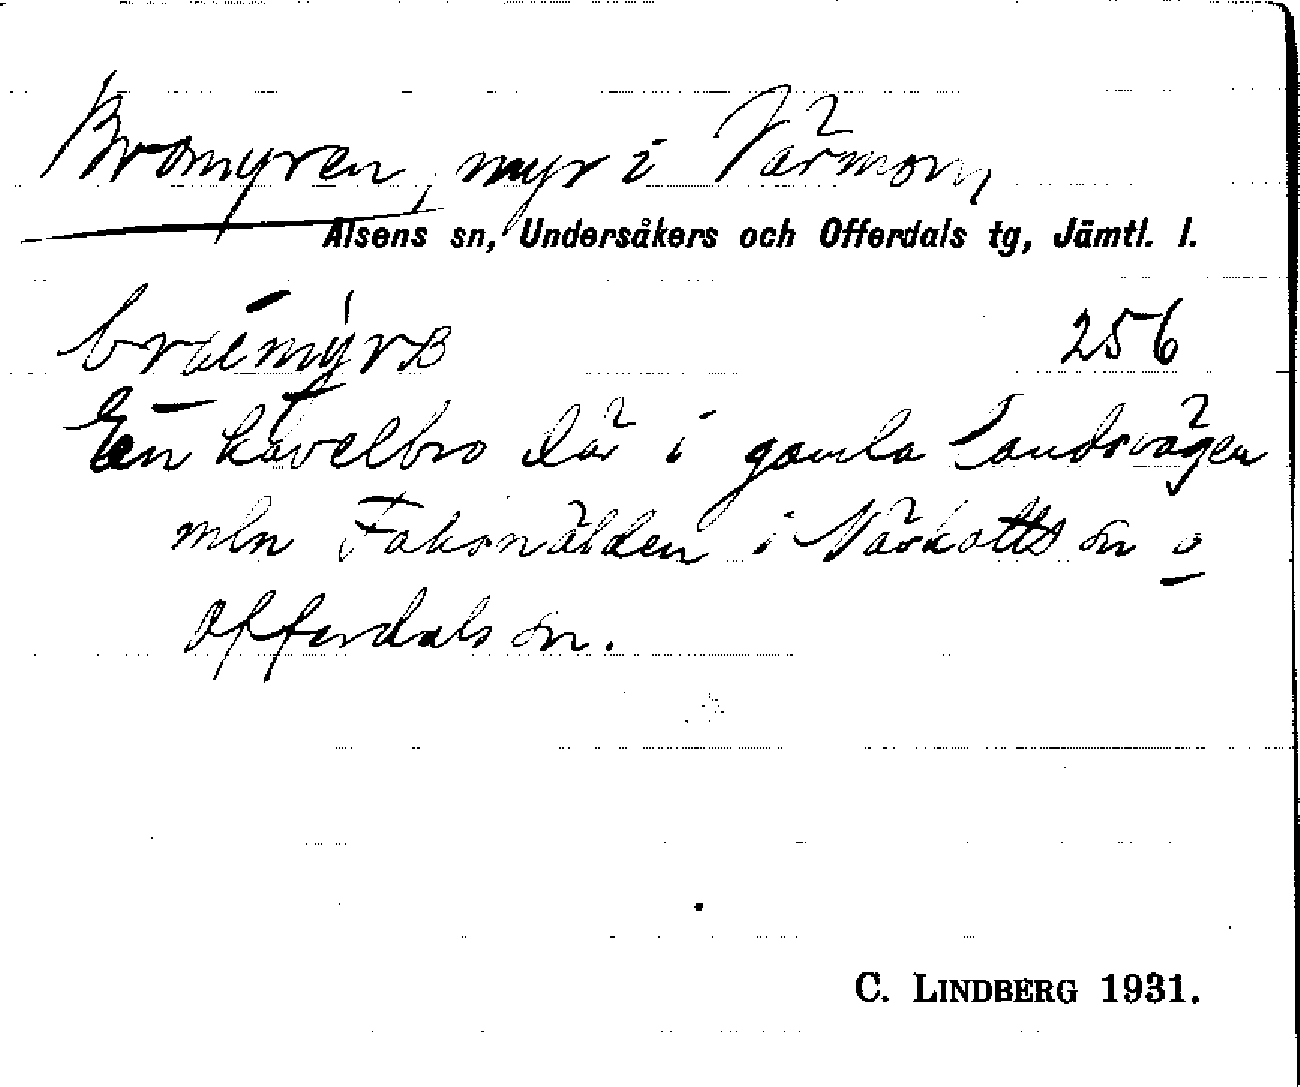 Bromyren, myr i Värmon,
Alsens sn, Undersåkers och Offerdals tg, Jämtl. l.
256
En kavelbro där i gamla landsvägen
mln Faksnälden i Näskotts sn o
Offerdals sn.
C. LINDBERG 1931.